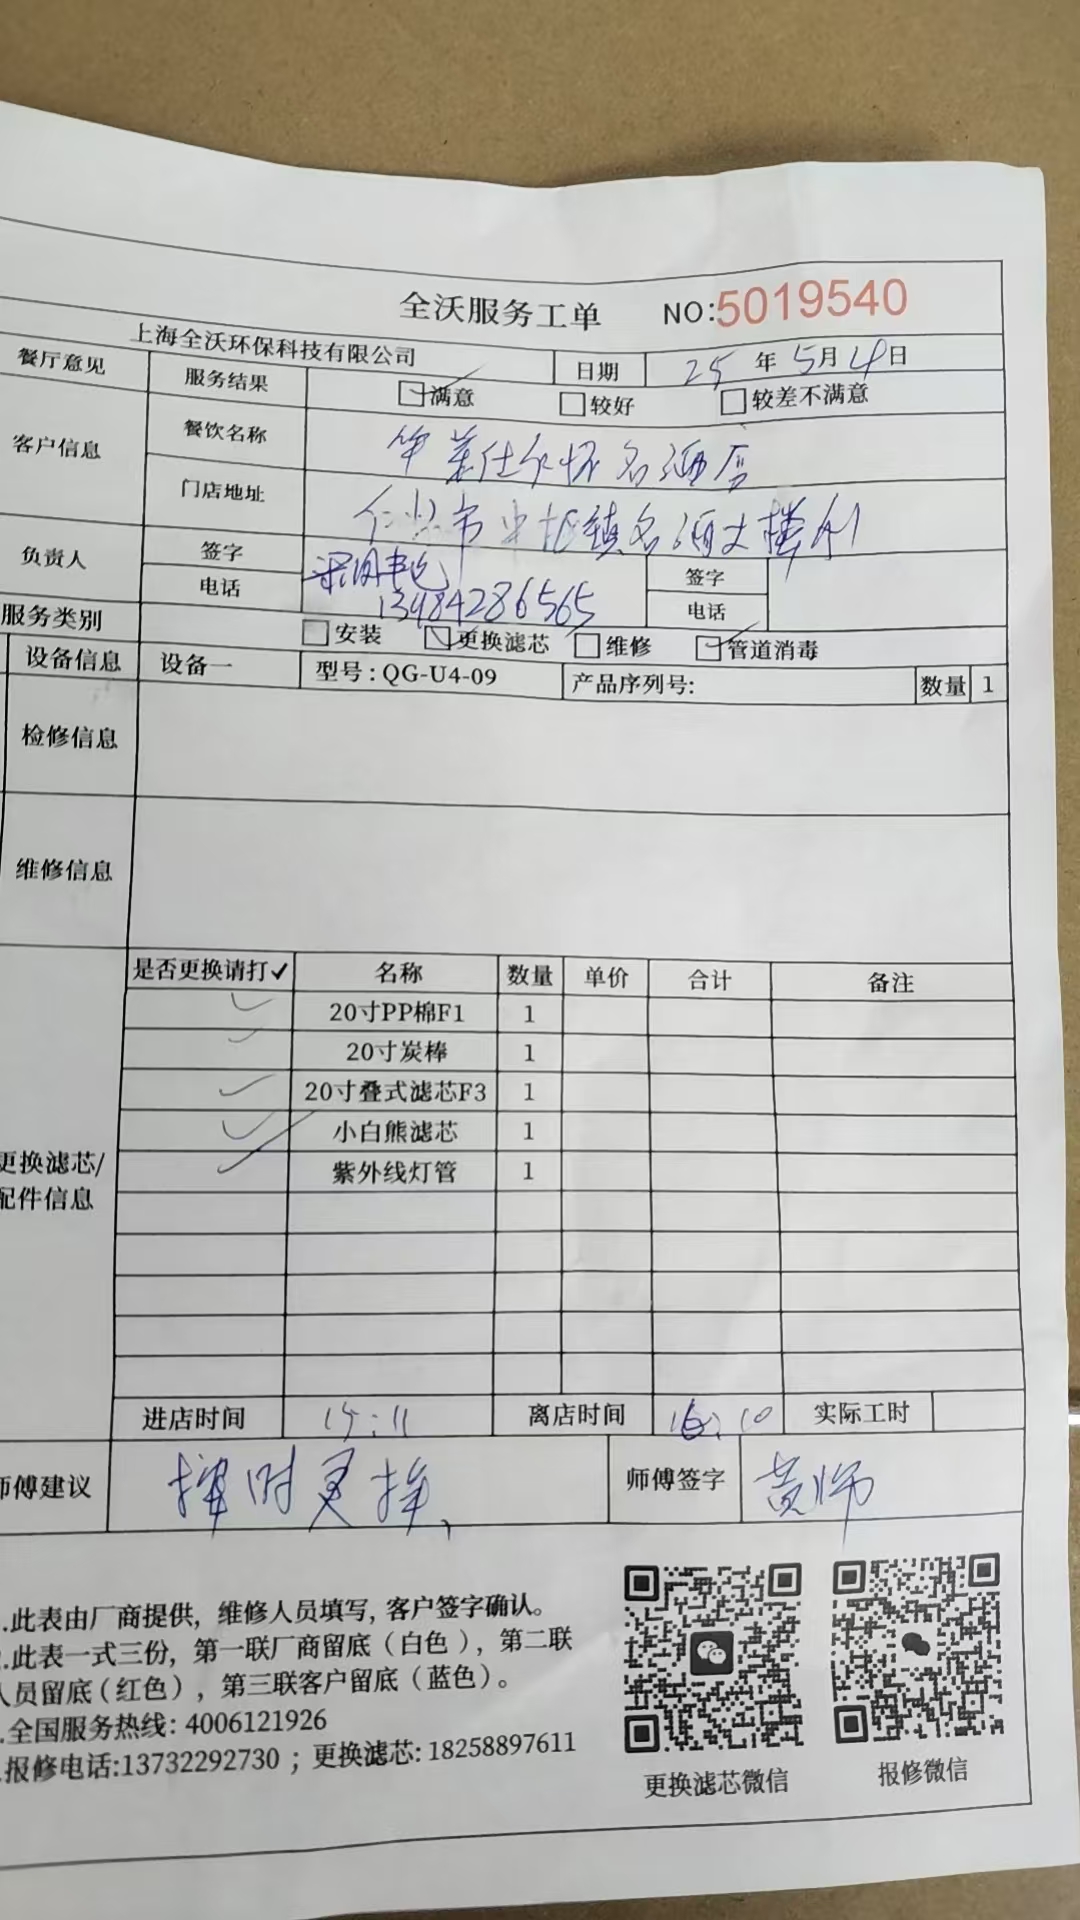 全沃服务工单 NO:5019540
上海全沃环保科技有限公司 日期 25年5月4日
餐厅意见 服务结果 满意 较好 较差不满意
客户信息 餐饮名称 华莱仕仁怀名酒店
门店地址 仁怀市中枢镇名酒大楼
负责人 签字 签字
电话 13984286565 电话
服务类别 安装 更换滤芯 维修 管道消毒
设备信息 设备一 型号:QG-U4-09 产品序列号: 数量 1
检修信息
维修信息
是否更换请打✓ 名称 数量 单价 合计 备注
✓ 20寸PP棉F1 1
✓ 20寸炭棒 1
✓ 20寸叠式滤芯F3 1
✓ 小白熊滤芯 1
✓ 紫外线灯管 1
更换滤芯/
配件信息
进店时间 15:11 离店时间 16:10 实际工时
师傅建议 按时更换 师傅签字 黄师
.此表由厂商提供, 维修人员填写, 客户签字确认。
.此表一式三份, 第一联厂商留底(白色), 第二联
人员留底(红色), 第三联客户留底(蓝色)。
.全国服务热线: 4006121926
.报修电话:13732292730 ; 更换滤芯: 18258897611
更换滤芯微信 报修微信